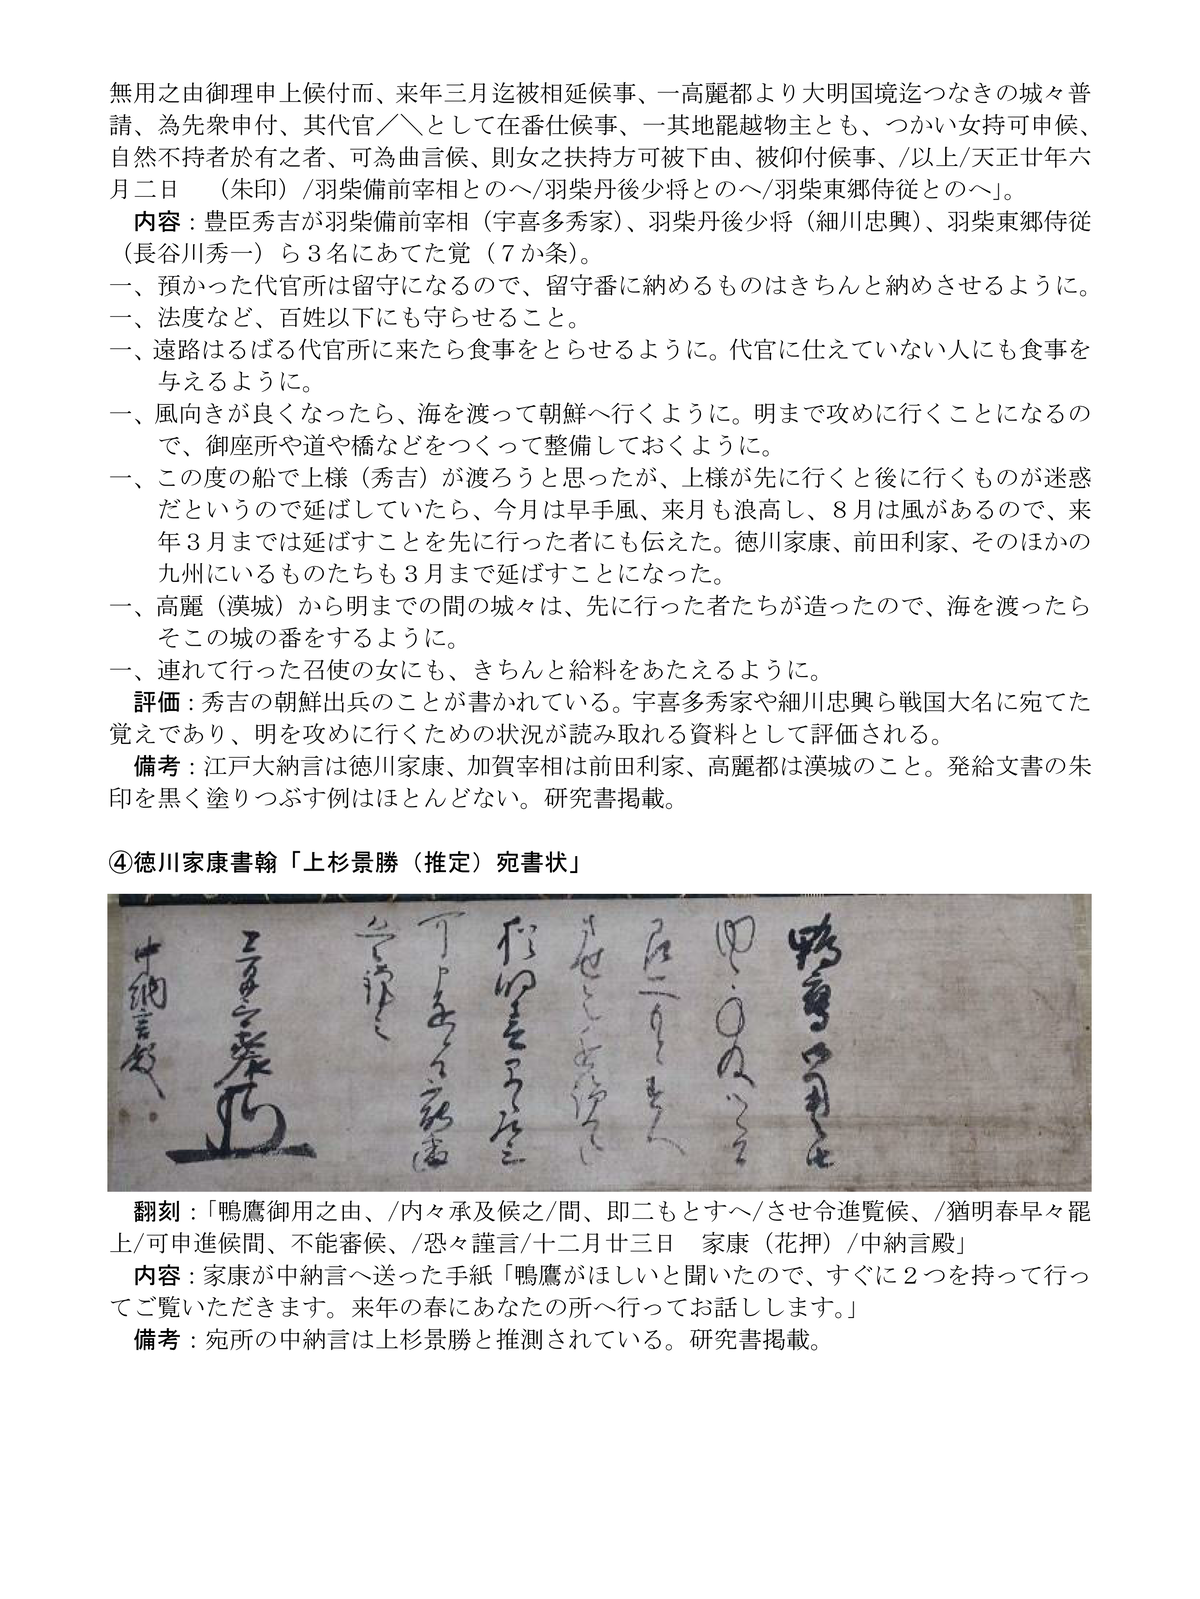 無用之由御理申上候付而、来年三月迄被相延候事、一高麗都より大明国境迄つなきの城々普
請、為先衆申付、其代官／＼として在番仕候事、一其地罷越物主とも、つかい女持可申候、
自然不持者於有之者、可為曲言候、則女之扶持方可被下由、被仰付候事、/以上/天正廿年六
月二日　（朱印）/羽柴備前宰相とのへ/羽柴丹後少将とのへ/羽柴東郷侍従とのへ」。
内容：豊臣秀吉が羽柴備前宰相（宇喜多秀家）、羽柴丹後少将（細川忠興）、羽柴東郷侍従
（長谷川秀一）ら３名にあてた覚（７か条）。
一、預かった代官所は留守になるので、留守番に納めるものはきちんと納めさせるように。
一、法度など、百姓以下にも守らせること。
一、遠路はるばる代官所に来たら食事をとらせるように。代官に仕えていない人にも食事を
与えるように。
一、風向きが良くなったら、海を渡って朝鮮へ行くように。明まで攻めに行くことになるの
で、御座所や道や橋などをつくって整備しておくように。
一、この度の船で上様（秀吉）が渡ろうと思ったが、上様が先に行くと後に行くものが迷惑
だというので延ばしていたら、今月は早手風、来月も浪高し、８月は風があるので、来
年３月までは延ばすことを先に行った者にも伝えた。徳川家康、前田利家、そのほかの
九州にいるものたちも３月まで延ばすことになった。
一、高麗（漢城）から明までの間の城々は、先に行った者たちが造ったので、海を渡ったら
そこの城の番をするように。
一、連れて行った召使の女にも、きちんと給料をあたえるように。
評価：秀吉の朝鮮出兵のことが書かれている。宇喜多秀家や細川忠興ら戦国大名に宛てた
覚えであり、明を攻めに行くための状況が読み取れる資料として評価される。
備考：江戸大納言は徳川家康、加賀宰相は前田利家、高麗都は漢城のこと。発給文書の朱
印を黒く塗りつぶす例はほとんどない。研究書掲載。
④徳川家康書翰「上杉景勝（推定）宛書状」
鴨鷹御用之由
内々承及候之
間即二もとすへ
させ令進覧候
猶明春早々罷上
可申進候間不能審候
恐々謹言
十二月廿三日　家康
中納言殿
翻刻：「鴨鷹御用之由、/内々承及候之/間、即二もとすへ/させ令進覧候、/猶明春早々罷
上/可申進候間、不能審候、/恐々謹言/十二月廿三日　家康（花押）/中納言殿」
内容：家康が中納言へ送った手紙「鴨鷹がほしいと聞いたので、すぐに２つを持って行っ
てご覧いただきます。来年の春にあなたの所へ行ってお話しします。」
備考：宛所の中納言は上杉景勝と推測されている。研究書掲載。